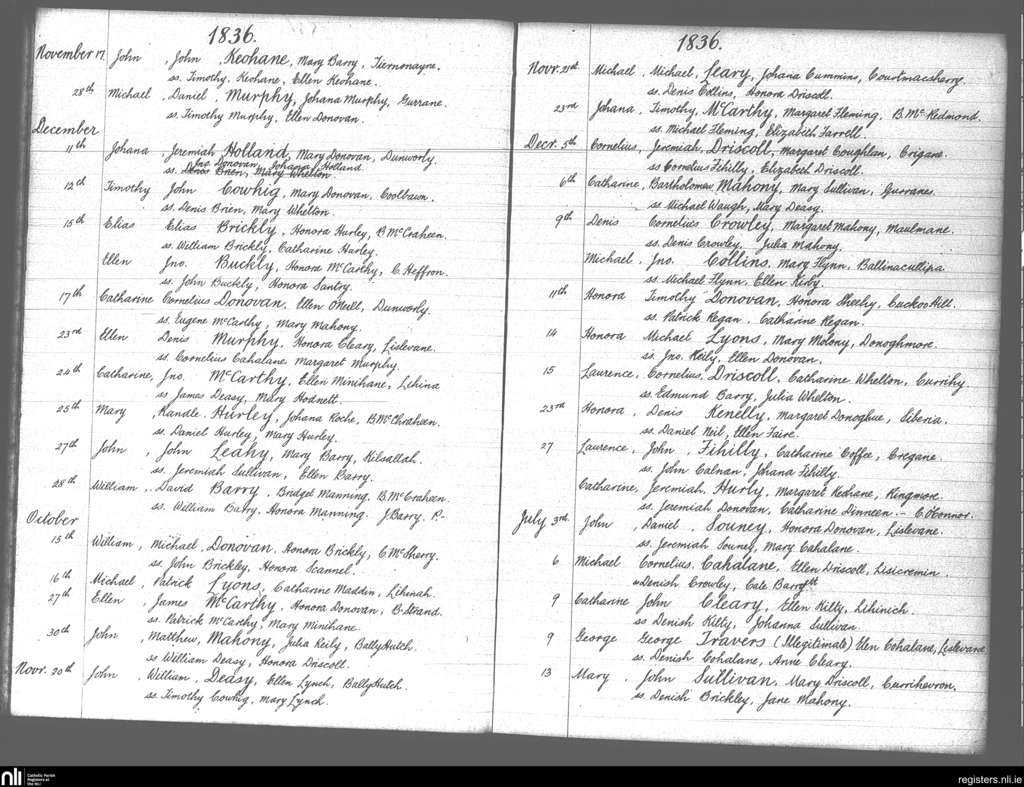 1836.
November 17. John, John Keohane, Mary Barry, Tiernonayne.
ss. Timothy Keohane, Ellen Keohane.
28th Michael, Daniel Murphy, Johana Murphy, Gurrane.
ss. Timothy Murphy, Ellen Donovan.
December
11th Johana, Jeremiah Holland, Mary Donovan, Dunworly.
Jno. Donovan, Johana Holland
ss. Denis Brien, Mary Whelton.
12th Timothy John Cowhig, Mary Donovan, Coolbawn.
ss. Denis Brien, Mary Whelton.
15th Elias Elias Brickly, Honora Hurley, B. McCraheen.
ss. William Brickly, Catharine Hurley.
Ellen Jno. Buckly, Honora McCarthy, C. Heffron.
ss. John Buckly, Honora Santry.
17th Catharine Cornelius Donovan, Ellen ONeill, Dunworly.
ss. Eugene McCarthy, Mary Mahony.
23rd Ellen Denis Murphy, Honora Cleary, Lislevane.
ss. Cornelius Cahalane, Margaret Murphy.
24th Catharine, Jno. McCarthy, Ellen Minihane, Lehina
ss James Deasy, Mary Hodnett.
25th Mary Randle Hurley, Johana Roche, B. McCraheen.
ss. Daniel Hurley, Mary Hurley.
27th John, John Leahy, Mary Barry, Kilsallah.
ss. Jeremiah Sullivan, Ellen Barry.
28th William, David Barry, Bridget Manning, B. McCraheen.
ss. William Barry, Honora Manning. J. Barry. P.-
October
15th William, Michael Donovan, Honora Brickly, C. McSherry.
ss. John Brickley, Honora Scannel.
16th Michael, Patrick Lyons, Catharine Madden, Lehinah.
27th Ellen, James McCarthy, Honora Donovan, B. Strand.
ss. Patrick McCarthy, Mary Minihane.
30th John, Matthew Mahony, Julia Reily, BallyHutch.
ss William Deasy, Honora Driscoll.
Novr. 20th John, William, Deasy, Ellen Lynch, BallyHutch.
ss. Timothy Cowhig, Mary Lynch.
1836.
Novr. 21st Michael, Michael, Leary, Johana Cummins, Courtmacsherry.
ss. Denis Collins, Honora Driscoll.
23rd Johana, Timothy McCarthy, Margaret Fleming, B. Mc Redmond.
ss. Michael Fleming, Elizabeth Farrell.
Decr. 5th Cornelius, Jeremiah, Driscoll, Margaret Coughlan, Crigane.
ss Cornelius Fihilly, Elizabeth Driscoll.
6th Catharine, Bartholomew Mahony, Mary Sullivan, Gurranes.
ss Michael Waugh, Mary Deasy.
9th Denis Cornelius Crowley, Margaret Mahony, Maulmane.
ss. Denis Crowley, Julia Mahony.
Michael, Jno. Collins, Mary Flynn, Ballinacullipa.
ss. Michael Flynn, Ellen Kirby.
11th Honora Timothy Donovan, Honora Sheehy, Cuckoo Hill.
ss. Patrick Regan, Catharine Regan.
14 Honora Michael Lyons, Mary Molony, Donoghmore.
ss. Jno. Reily, Ellen Donovan.
15 Laurence, Cornelius, Driscoll, Catharine Whelton, Currihy.
ss. Edmund Barry, Julia Whelton.
23rd Honora, Denis Kenelly, Margaret Donoghue, Siberia.
ss. Daniel Neil, Ellen Faire.
27 Laurence, John, Fihilly, Catharine Coffee, Cregane.
ss. John Calnan, Johana Fihilly.
Catharine, Jeremiah, Hurly, Margaret Keohane, Ringmore.
ss. Jeremiah Donovan, Catharine Dinneen.- C. O'Connor.
July 3rd. John, Daniel, Souney, Honora Donovan, Lislevane.
ss. Jeremiah Souney, Mary Cahalane.
6 Michael Cornelius, Cahalane, Ellen Driscoll, Lisicremin.
Denish Crowley, Cate Barrott
9 Catharine John Cleary, Ellen Kilty, Lehinich.
ss Denish Kilty, Johanna Sullivan.
9 George George Travers (Illegitimate) Elen Cohalane, Lislevane
ss. Denish Cohalane, Anne Cleary.
13 Mary, John Sullivan, Mary Driscoll, Currihevron.
ss. Denish Brickley, Jane Mahony.
nli Catholic Parish Registers at the NLI
registers.nli.ie